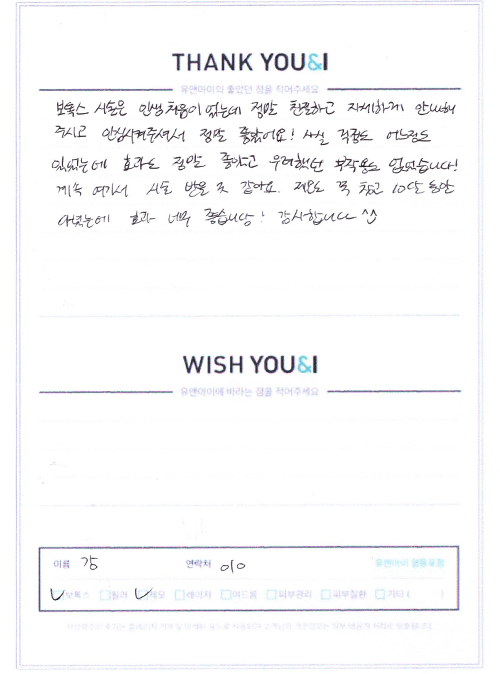 THANK YOU&I
유앤아이의 좋았던 점을 적어주세요
보톡스 시술은 인생 처음이었는데 정말 친절하고 자세하게 안내해
주시고 안심시켜주셔서 정말 좋았어요! 사실 걱정도 어느정도
있었는데 효과도 정말 좋았고 우려했던 부작용도 없었습니다!
계속 여기서 시술 받을 것 같아요. 제모도 쭉 했고 10달 동안
다녔는데 효과 너무 좋습니당! 감사합니다 ^^
WISH YOU&I
유앤아이에 바라는 점을 적어주세요
이름 연락처 010
보톡스 필러 제모 레이저 여드름 피부관리 피부질환 기타 ( )